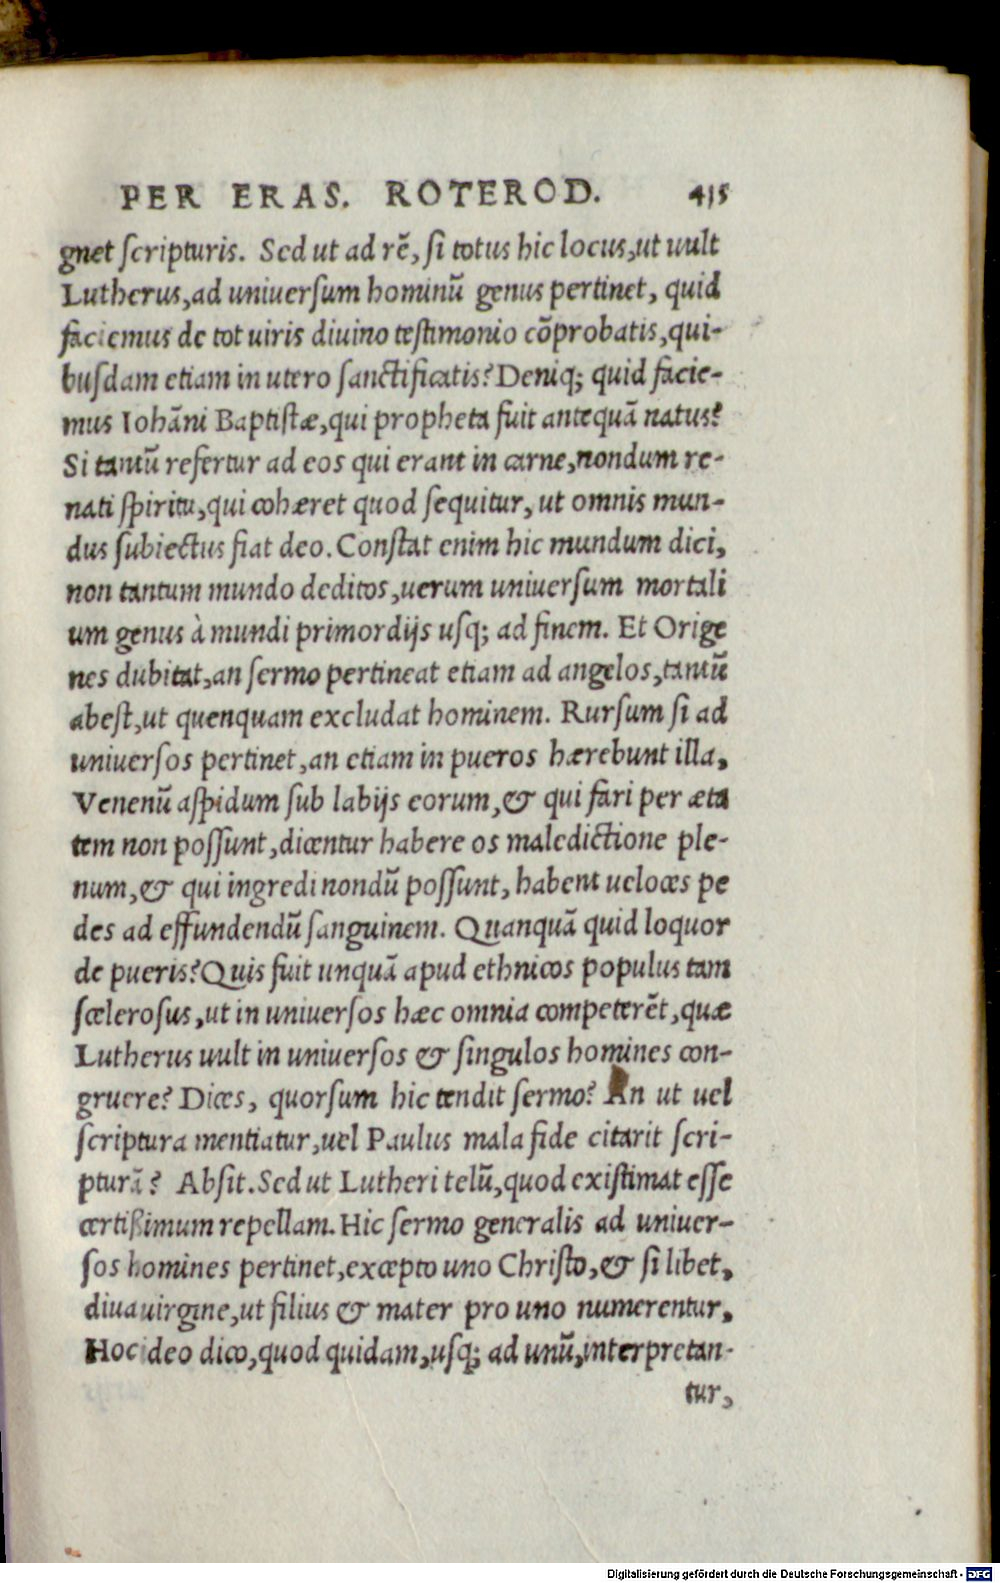 PER ERAS. ROTEROD. 415
gnet ſcripturis. Sed ut ad rē, ſi totus hic locus, ut uult
Lutherus, ad uniuerſum hominū genus pertinet, quid
faciemus de tot uiris diuino teſtimonio cōprobatis, qui-
buſdam etiam in utero ſanctificatis? Deniq; quid facie-
mus Iohāni Baptiſtæ, qui propheta fuit antequā natus?
Si tantū refertur ad eos qui erant in carne, nondum re-
nati ſpiritu, qui cohæret quod ſequitur, ut omnis mun-
dus ſubiectus fiat deo. Conſtat enim hic mundum dici,
non tantum mundo deditos, uerum uniuerſum mortali
um genus à mundi primordijs uſq; ad finem. Et Orige
nes dubitat, an ſermo pertineat etiam ad angelos, tantū
abeſt, ut quenquam excludat hominem. Rurſum ſi ad
uniuerſos pertinet, an etiam in pueros hærebunt illa,
Venenū aſpidum ſub labijs eorum, & qui fari per æta
tem non poſſunt, dicentur habere os maledictione ple-
num, & qui ingredi nondū poſſunt, habent ueloces pe
des ad effundendū ſanguinem. Quanquā quid loquor
de pueris? Quis fuit unquā apud ethnicos populus tam
ſceleroſus, ut in uniuerſos hæc omnia competerēt, quæ
Lutherus uult in uniuerſos & ſingulos homines con-
gruere? Dices, quorſum hic tendit ſermo? An ut uel
ſcriptura mentiatur, uel Paulus mala fide citarit ſcri-
pturā? Abſit. Sed ut Lutheri telū, quod exiſtimat eſſe
certißimum repellam. Hic ſermo generalis ad uniuer-
ſos homines pertinet, excepto uno Chriſto, & ſi libet,
diua uirgine, ut filius & mater pro uno numerentur.
Hoc ideo dico, quod quidam, uſq; ad unū, interpretan-
tur,
Digitalisierung gefördert durch die Deutsche Forschungsgemeinschaft - DFG